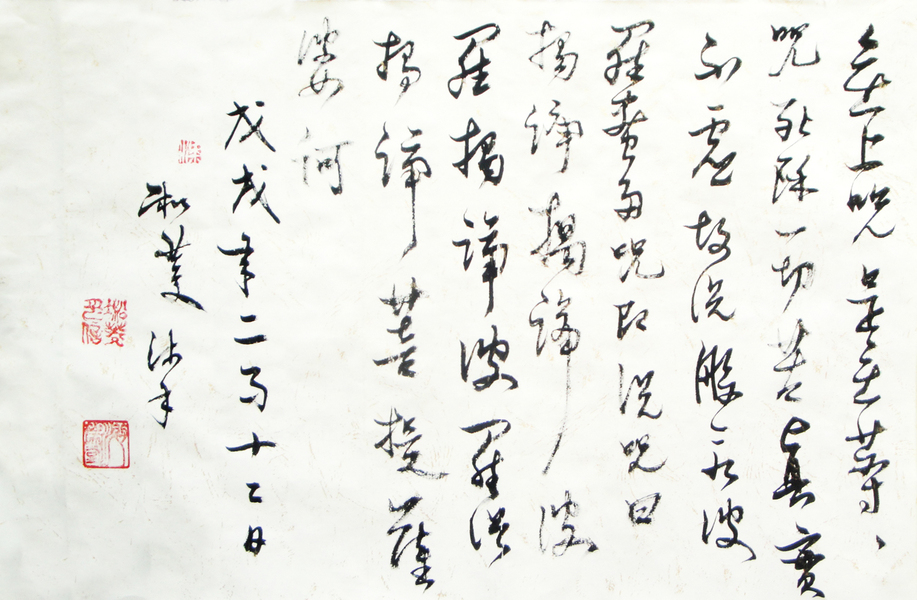 無上咒是無等、
咒能除一切苦真實
不虛故說般若波
羅蜜多咒即說咒曰
揭諦揭諦波
羅揭諦波羅僧
揭諦菩提薩
婆訶
戊戌年二月十二日
菱沐手